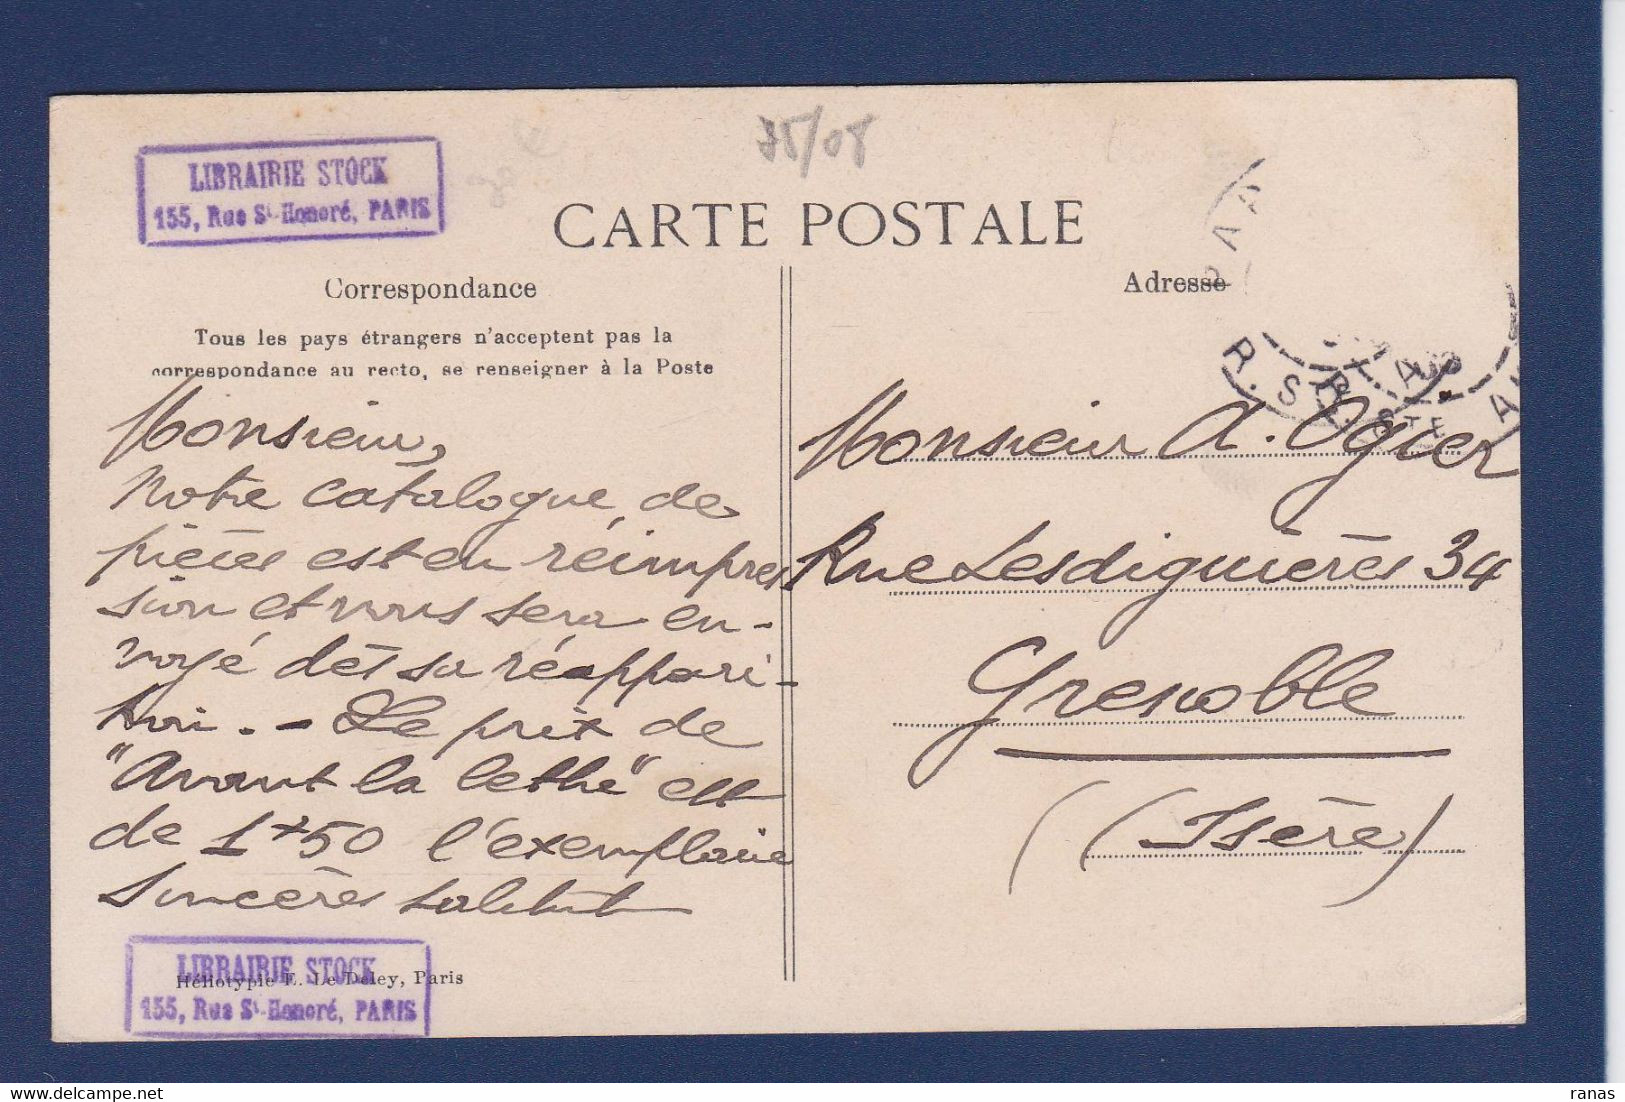 75/08
LIBRAIRIE STOCK
155, Rue St-Honoré, PARIS
CARTE POSTALE
Correspondance
Adresse
Tous les pays étrangers n'acceptent pas la
correspondance au recto, se renseigner à la Poste
Monsieur,
Notre catalogue de
pièces est en réimpres
sion et vous sera en-
voyé dès sa réappari-
tion. - Le prix de
"Avant la lethe" est
de 1f50 l'exemplaire
Sincères salut
Monsieur A. Ogier
Rue Lesdiguières 34
Grenoble
(Isère)
LIBRAIRIE STOCK
155, Rue St-Honoré, PARIS
Héliotypie E. Le Deley, Paris
ranas